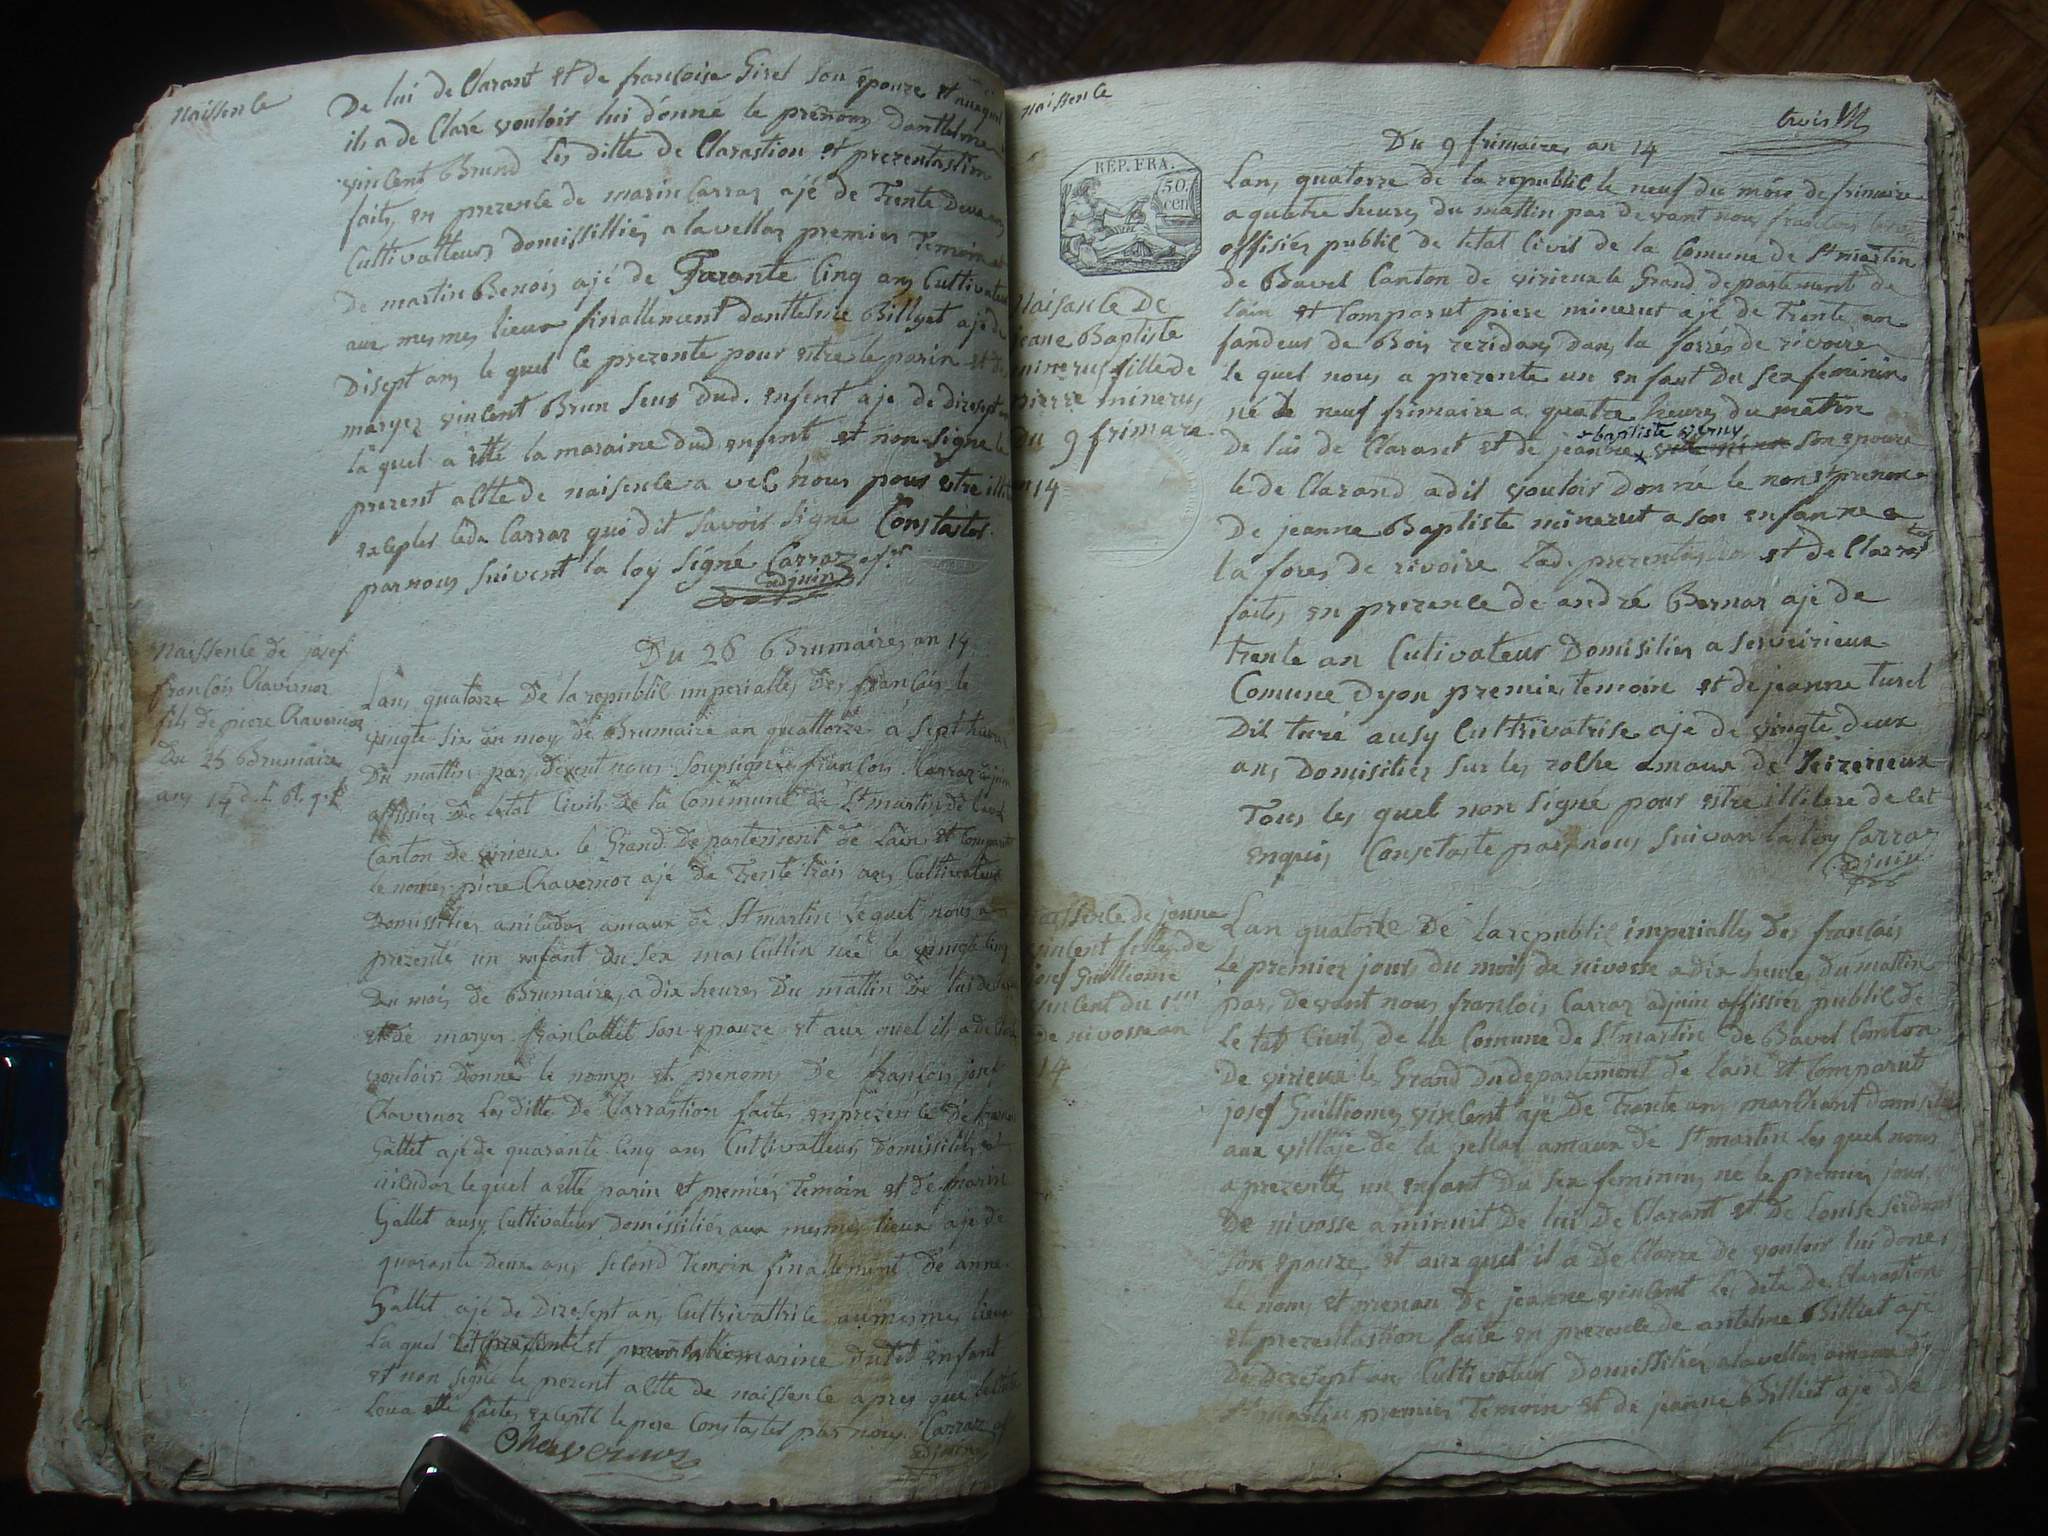 Naissence
De lui de Clarant et de francoise Girel son épouze et auxquel
ils a de Claré vouloir lui donné le prénom dantelme
vincent Brund les ditte de Clarastion et prezentastion
faits, en prezence de marin Carraz ajé de Trente Deux ans
Cultivatteur domissilliés a lavellaz premier Temoin et
de martin Benois ajé de Tarante Cinq ans Cultivateur
aux mesmes lieux finallement dantelme Billyet aje de
Disept ans le quel ce prezente pour estre le parin et de
margez vincent Brun seur dud. enfent aje de dizesept ans
la quel a esté la maraine dud enfent et non signé le
prezent altte de naisence a vec nous pour estre
exceptes ledt Carraz qui dit savoir signé Constaster
par nous suivent la loy signé Carraz
adjuin
Du 26 Brumaires an 14
Naissence de josef
francois Chavernoz
fils de piere Chavernoz
Du 25 Brumaire
an 14
Lan quatorze De la republic imperialles Des francais le
vingte six du moy de Brumaire an quattorze a sept heure
Du mattin par devent nous soupsigné francois Carraz adjuin
offissier De letat Civil De la Commune de St martin de
Canton de virieux le Grand Departement de Lain et Comparut
le nomes piere Chavernoz ajé de Trente trois ans Cultivateur
Domissilies a niludoz amaux de St martin Lequel nous a
prezenté un enfant Du sex mascullin née le vingte Cinq
Du mois de Brumaires a dix heures Du mattin De lui de
et de marger francallet son epouze et aux quel ils a de
vouloir Donné le nomp et prenom De francois josef
Chavernoz Les ditte De Clarrastion faites en prezence de
Gallet aje de quarante Cinq ans Cultivatteur Domissilies
niludoz lequel a esté parin et premier Temoin et de marin
Gallet ausy Cultivateur Domissiliés aux mesmes lieux aje de
quarante deux ans second Temoin finallement de anne
Gallet ajé de Dizesept ans Cultrivattrice au mesmes lieux
La quel et marine dudit enfant
et non signé le prezent altte de naissence apres que
leua esté faites excepté le pere Constaster par nous Carraz
adjuin
Chavernoz
Naissence
trois
Du 9 frimaires an 14
REP. FRA.
50.
cen
Naisance De
jeane Baptiste
minerut fille de
pierre minerus
Du 9 frimare
an 14
Lan quatorze de la republic le neuf du mois de frimaire
a quatre heures du mattin par devant nous francois
offisiés public de letat Civil de la Comune de St martin
de Bavel Canton de virieux le Grand departement de
lain et Comparut piere minerut ajé de Trente an
fandeur de Bois rezidans dans la forrés de rivoire
le quel nous a prezente un enfant du sex feminin
né le neuf frimaire a quatre heures du matin
+ baptiste
De lui de Clarant et de jeanne son epouze
le de Clarand a dit vouloir donné le nom et prenom
De jeanne Baptiste minerut a son enfanne a
la fores de rivoire Lad. prezentastion et de Clarras
tion
faits en prezence de andré Bernar ajé de
trente an Cultivateur Domisiliés a serveirieux
Comune Dyon premier temoin et de jeanne Turel
Dit turé ausy Cultrivatrise aje de vingte deux
ans Domisiliés sur les roche amaux de
Tous les quel non signé pour estre illitere de cet
enquis Consetaste par nous suivan la loy Carraz
adjuin
Naissence de jeanne
vincent filles de
josef Guilliome
vincent du 1er
de nivosse an
14
Lan quatorze De la republic imperialles Des francais
Le premier jours du mois de nivosse a dix heures du mattin
par devant nous francois Carraz adjuin offissier public de
le tat Civil de la Comune de St martin de Bavel Canton
De virieux le Grand Du departement de Lain et Comparut
josef Guilliomes vincent ajé De Trente ans marchant domisilié
aux villaje de la vellaz amaux de St martin les quel nous
a prezenté un enfant Du sex feminin ne le premier jour
De nivosse a minuit De lui De Clarant et De Louise
son epouze et aux quel il a De Clarre De vouloir lui doner
le nom et prenon De jeanne vincent les dite De Clarastion
et prezentastion faite en prezence de antelme Billiet ajé
De Dizesept an Cultivateur Domissilies a lavellaz amaux
St martin premier Temoin et de jeanne Billiet aje de